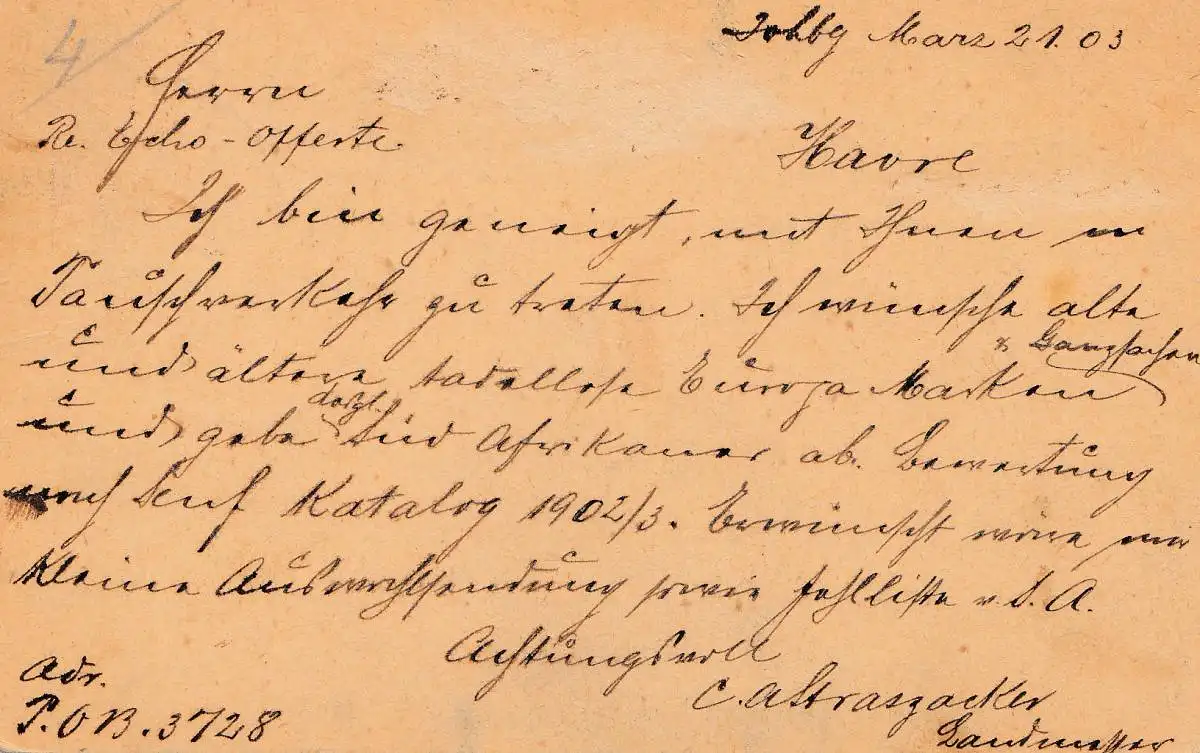 4
Johbg Marz 21. 03
Herrn
Re. Echo-Offerte.
Havre
Ich bin geneigt, mit Ihnen in
Tauschverkehr zu treten. Ich wünsche alte
& Ganzsachen
und ältere, tadellose Europa Marken
dergl.
und gebe Süd Afrikaner ab. Bewertung
nach Senf Katalog 1902/3. Erwünscht wäre mir
kleine Auswahlsendung sowie Fehlliste v. S. A.
Achtungsvoll
Adr.
C. A. Straszacker
P.O B. 3728
Landmesser